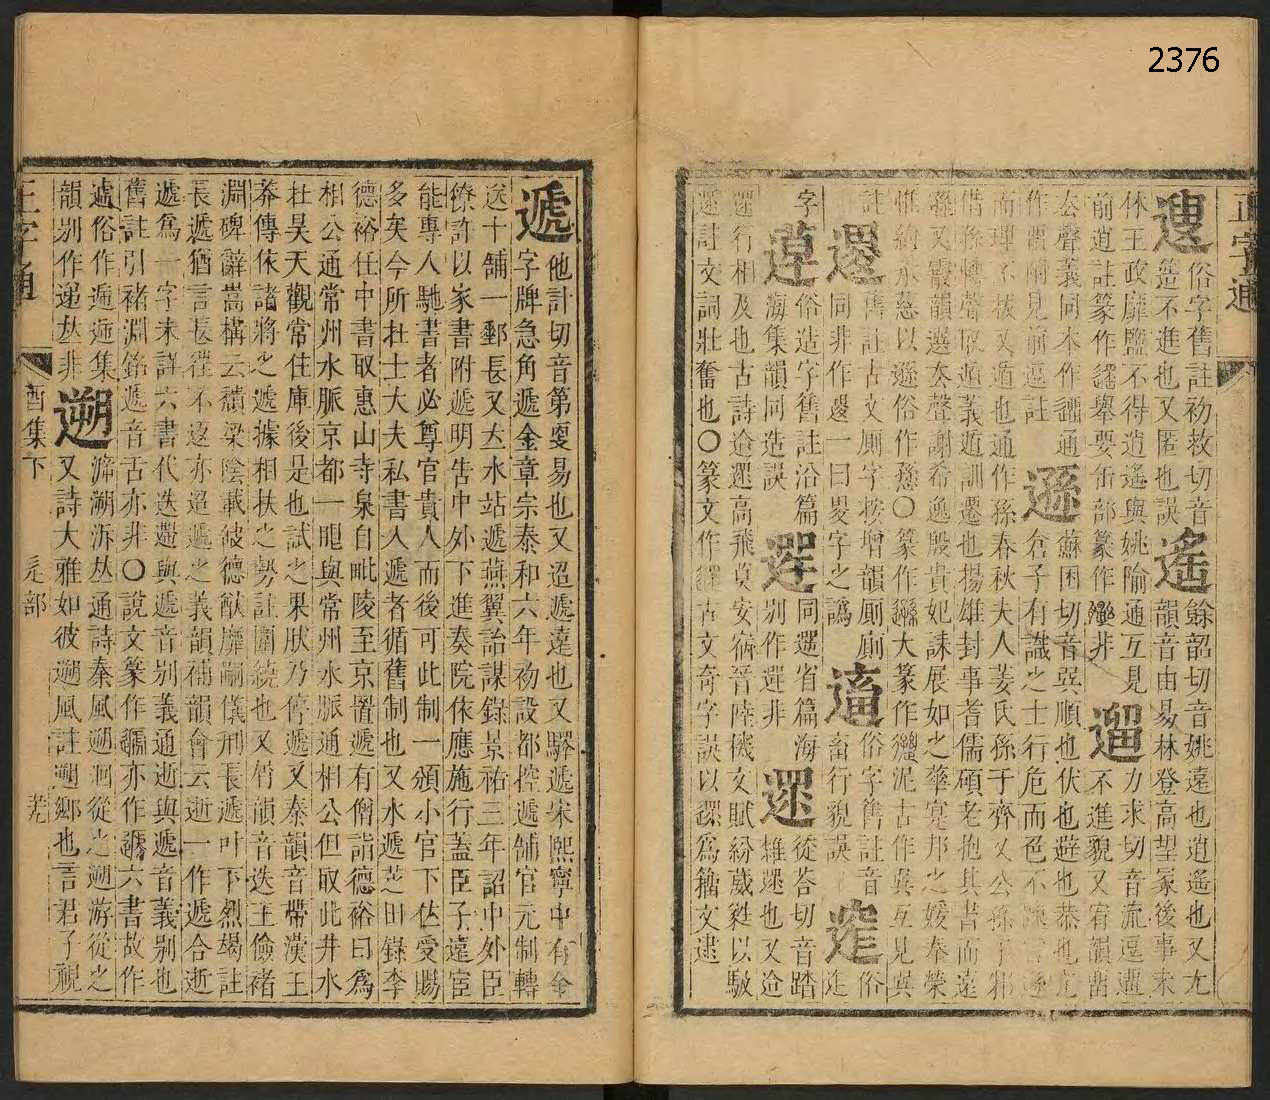 2376
正字通
俗字舊註初救切音
簉不進也又匿也誤
遙
餘韶切音姚遠也逍遙也又尤
韻音由易林登高望家後事未
休王政靡盬不得逍遙與姚陯通互見
前逍註篆作䌛舉要缶部篆作 非
遛
力求切音流逗遛
不進貌又宥韻霤
去聲義同本作 通
作 前見前逗註
遜
蘇困切音巽順也伏也避也恭也
倉子有識之士行危而色不
而理不 又遁也通作孫春秋夫人姜氏孫于齊又公孫于邾
借 聲 遁義遁訓遷也揚雄封事耆儒碩老抱其書而遠
遜又霰韻選去聲謝希逸殷貴妃誄展如之華寔邦之媛奉榮
惟約承慈以遜俗作愻〇篆作 大篆作 古作巽互見巽
註
還
舊註古文廁字按增韻廁
同非作 一曰 字之譌
遒
俗字舊註音
畜行貌誤
俗
字
俗造字舊註沿篇
海集韻同造誤
同遝省篇海
別作遝非
遝
從荅切音踏
雜遝也又迨
遝行相及也古詩迨遝高飛莫安宿晉陸機文賦紛葳蕤以馺
遝註文詞壯奮也〇篆文作 古文奇字誤以 爲籀文逮
遞
他計切音第更易也又迢遞遠也又驛遞宋熙寧中有金
字牌急角遞金章宗泰和六年初設都控遞舖官元制轉
送十舖一郵長又大水站遞燕翼詒謀錄景祐三年詔中外臣
僚許以家書附遞明告中外下進奏院依應施行蓋臣子遠宦
能專人馳書者必尊官貴人而後可此制一頒小官下位受賜
多矣今所在士大夫私書入遞者循舊制也又水遞芝田錄李
德裕任中書取惠山寺泉自毗陵至京置遞有僧詣德裕曰爲
相公通常州水脈京都一眼與常州水脈通相公但取此井水
在昊天觀常住庫後是也試之果然乃停遞又泰韻音帶漢王
莽傳依諸將之遞據相扶之勢註圍繞也又屑韻音迭王儉褚
淵碑辭嵩構云頹梁陰載缺德猷靡嗣儀刑長遞叶下烈竭註
長遞猶言長往不還亦迢遞之義韻補韻會云逝一作遞合逝
遞爲一字未詳六書代迭遷與遞音別義通逝與遞音義別也
舊註引褚淵銘遞音舌亦非〇說文篆作 亦作 六書故作
遞俗作 逓集
韻別作递𠀤非
遡
瀞遡泝𠀤通詩秦風遡洄從之遡游從之
又詩大雅如彼遡風註遡鄉也言君子視
正字通
酉集下
辵部